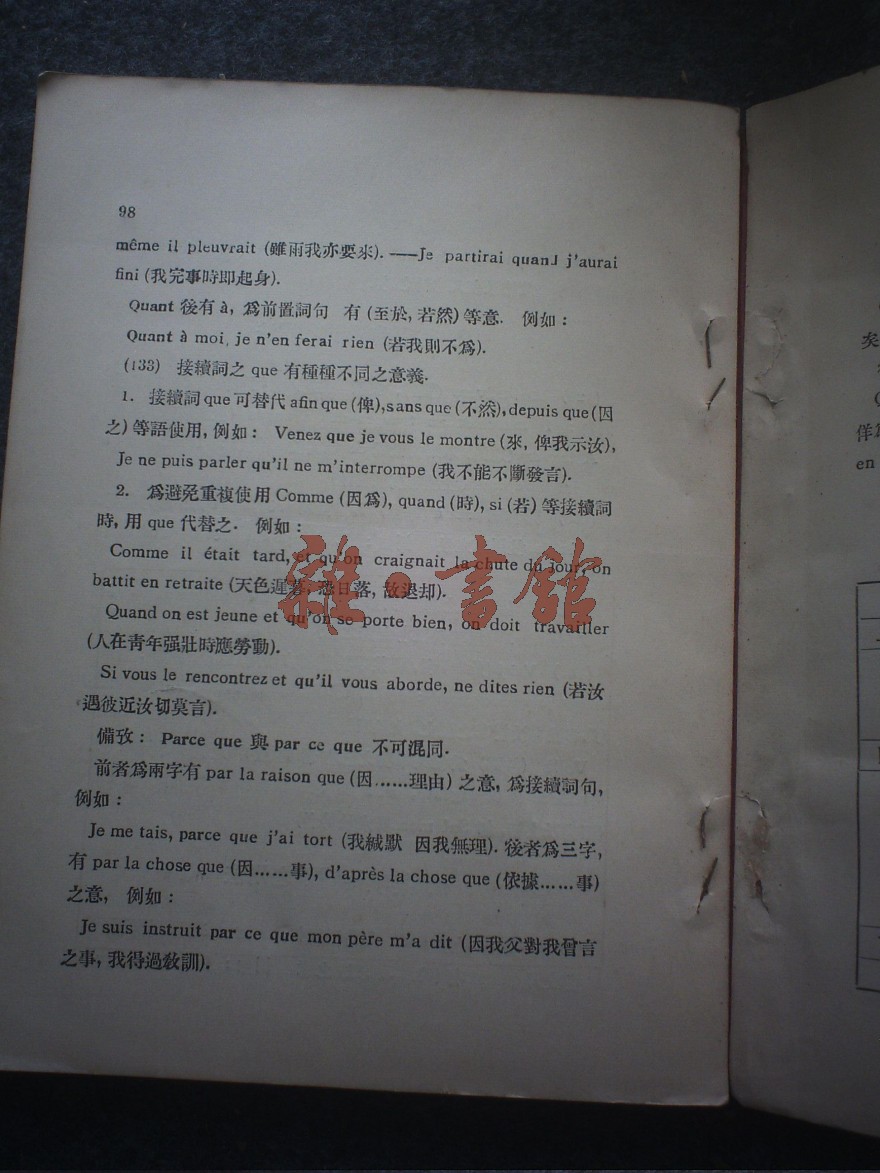 98
même il pleuvrait (雖雨我亦要來). ——Je partirai quand j'aurai
fini (我完事時即起身).
Quant 後有 à, 爲前置詞句 有 (至於, 若然) 等意. 例如:
Quant à moi, je n'en ferai rien (若我則不爲).
(133) 接續詞之 que 有種種不同之意義.
1. 接續詞 que 可替代 afin que (俾), sans que (不然), depuis que (因
之) 等語使用, 例如: Venez que je vous le montre (來, 俾我示汝),
Je ne puis parler qu'il ne m'interrompe (我不能不斷發言).
2. 爲避免重複使用 Comme (因爲), quand (時), si (若) 等接續詞
時, 用 que 代替之. 例如:
Comme il était tard, et qu'on craignait la chute du jour, on
battit en retraite (天色遲暮, 恐日落, 故退却).
Quand on est jeune et qu'on se porte bien, on doit travailler
(人在靑年强壯時應勞動).
Si vous le rencontrez et qu'il vous aborde, ne dites rien (若汝
遇彼近汝切莫言).
備攷: Parce que 與 par ce que 不可混同.
前者爲兩字有 par la raison que (因......理由) 之意, 爲接續詞句,
例如:
Je me tais, parce que j'ai tort (我緘默 因我無理). 後者爲三字,
有 par la chose que (因......事), d'après la chose que (依據......事)
之意, 例如:
Je suis instruit par ce que mon père m'a dit (因我父對我曾言
之事, 我得過敎訓).
雜·書館
矣
佯
en